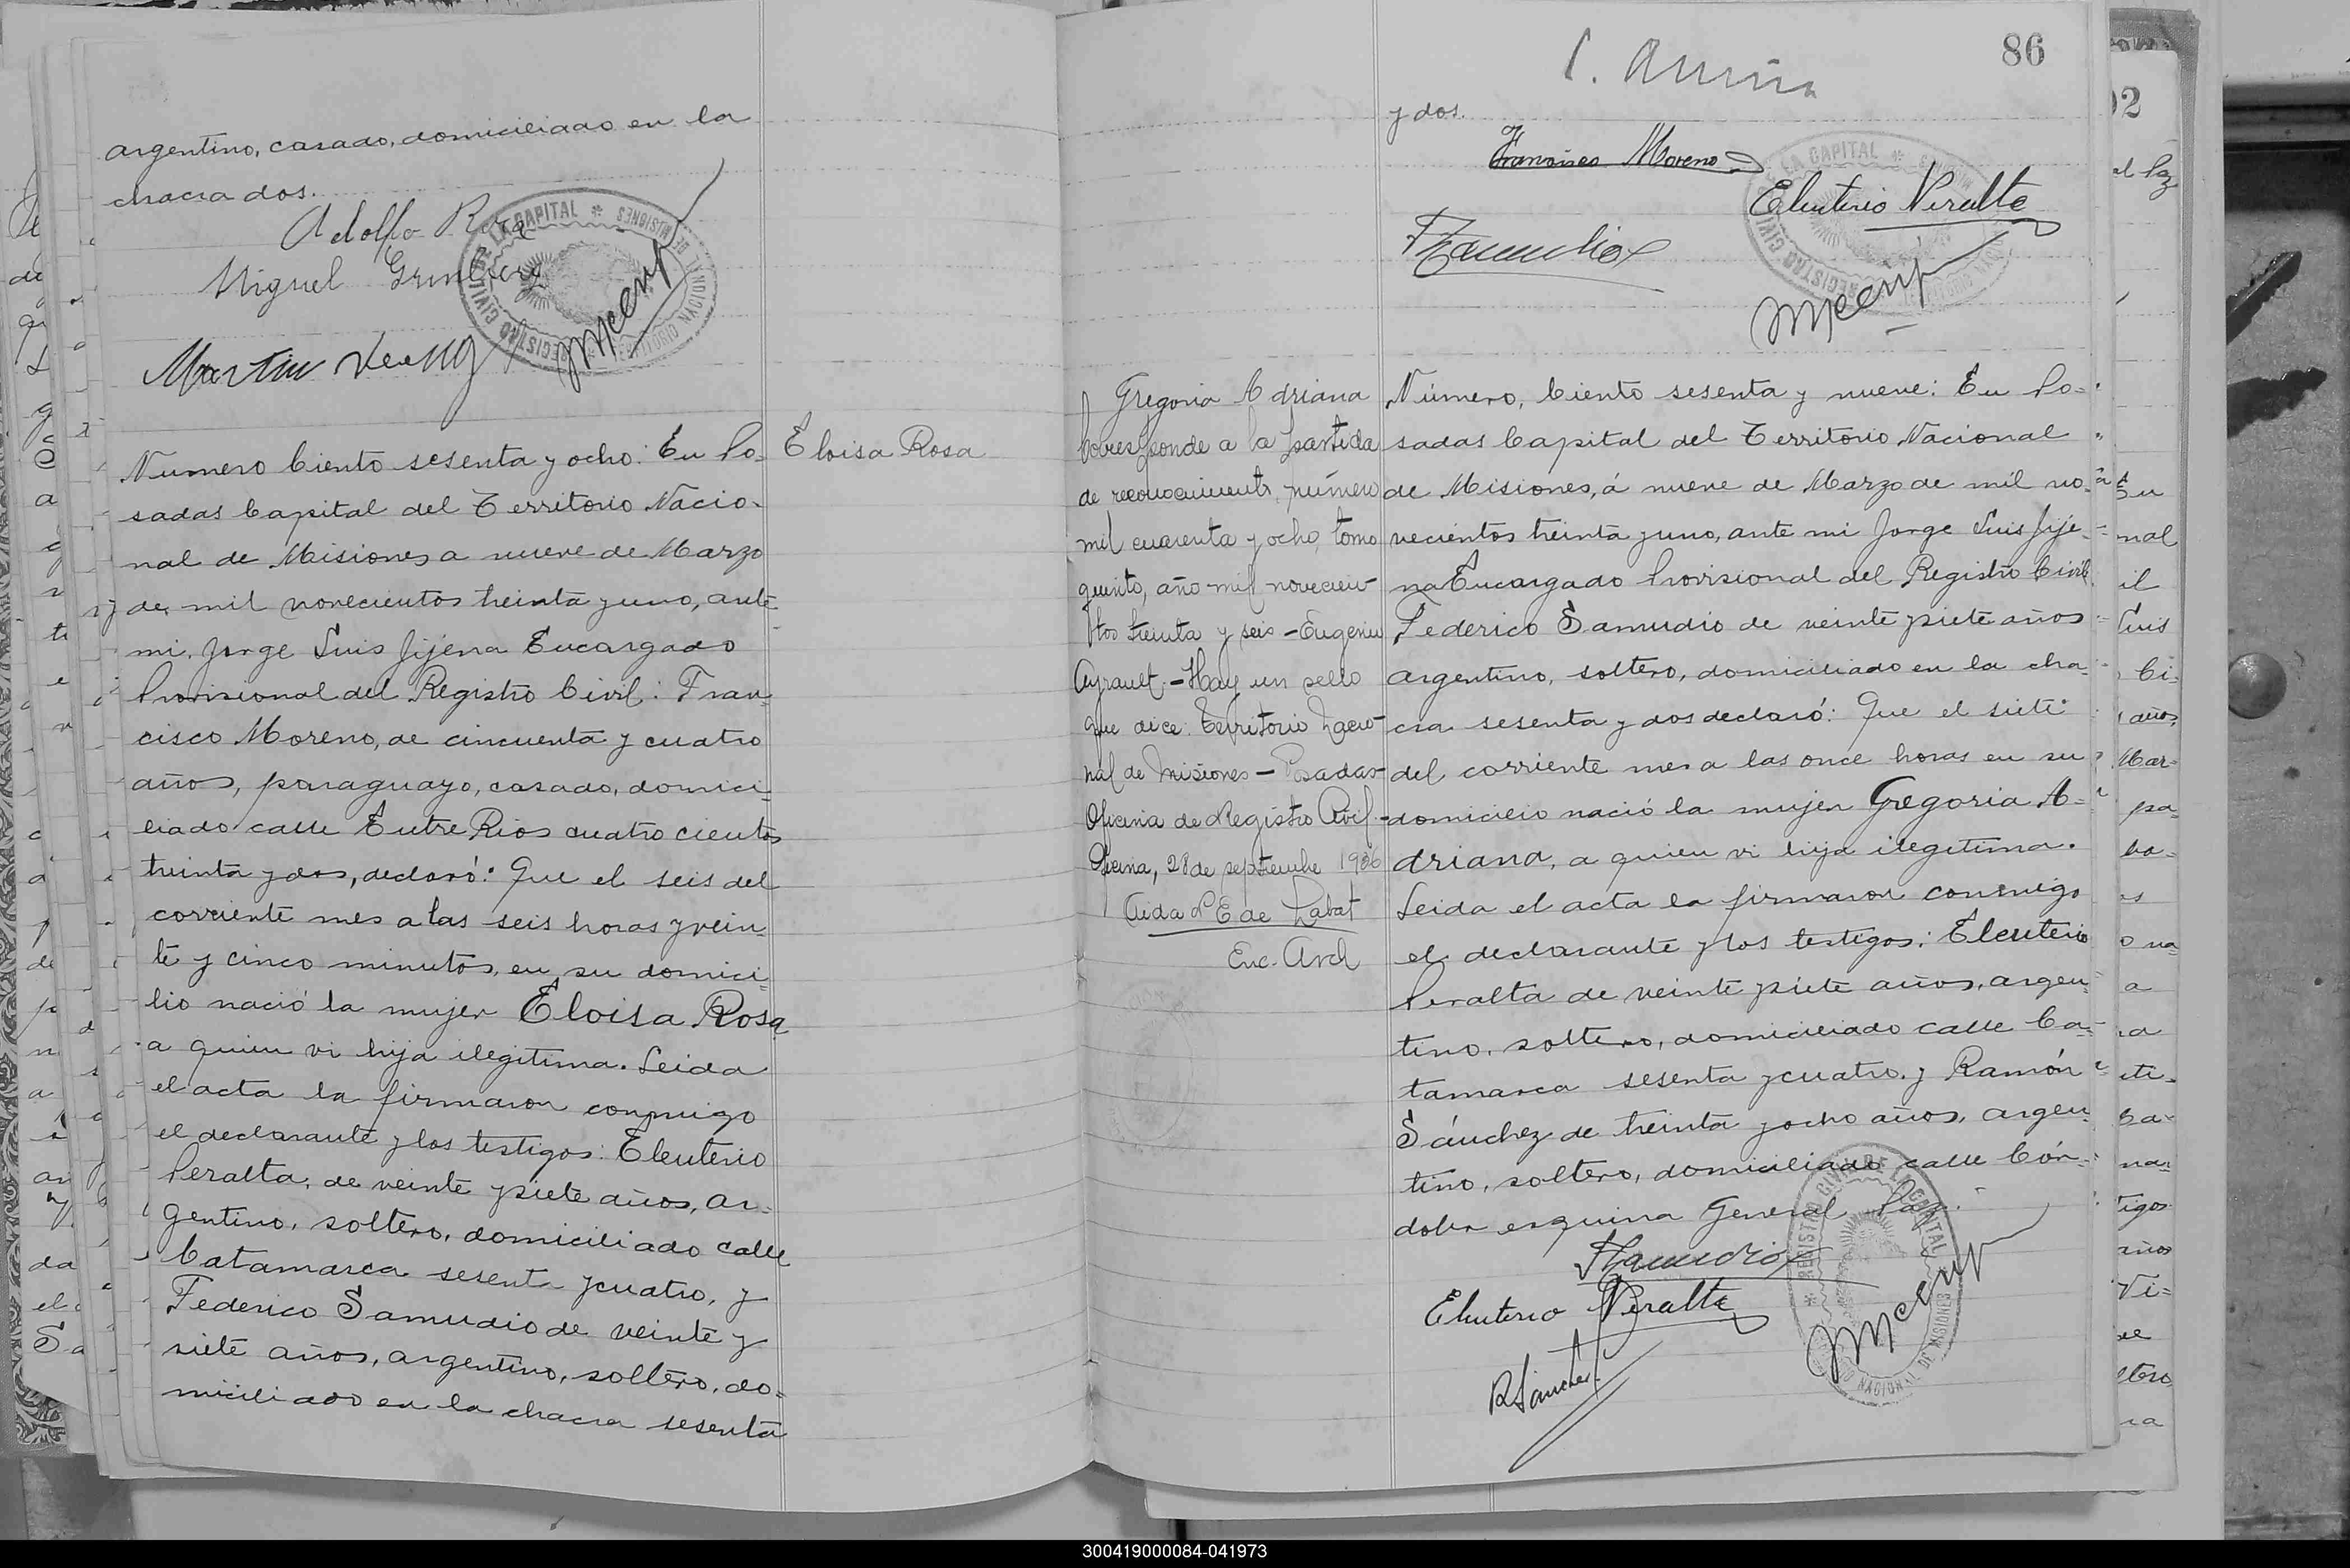 argentino, casado, domiciliado en la
chacra dos.
Adolfo Roza
Miguel
Martin
REGISTRO CIVIL DE LA CAPITAL * DE MISIONES
Número Ciento sesenta y ocho: En Po=
Eloisa Rosa
sadas Capital del Territorio Nacio-
nal de Misiones a nueve de Marzo
de mil novecientos treinta y uno, ante
mi, Jorge Luis Jijena Encargado
Provisional del Registro Civil: Fran-
cisco Moreno, de cincuenta y cuatro
años, paraguayo, casado, domici-
liado calle Entre Rios cuatro cientos
treinta y dos, declaró: Que el seis del
corriente mes a las seis horas y vein-
te y cinco minutos, en su domici-
lio nació la mujer Eloisa Rosa
a quien vi hija ilegitima. Leida
el acta la firmaron conmigo
el declarante y los testigos: Eleuterio
Peralta, de veinte y siete años, ar-
gentino, soltero, domiciliado calle
Catamarca sesenta y cuatro, y
Federico Samudio de veinte y
siete años, argentino, soltero, do=
miciliado en la chacra sesenta
86
y dos.
Francisco Moreno
Eleuterio Peralta
FZamudio
Gregoria Adriana
Corresponde a la partida
de reconocimiento, número
mil cuarenta y ocho, tomo
quinto, año mil novecien-
tos treinta y seis - Eugenio
Ayrault. - Hay un sello
que dice: Territorio Nacio-
nal de Misiones - Posadas -
Oficina de Registro Civil -
Oficina, 28 de septiembre 1936
Aida P E de Labat
Enc. Arch
Número, Ciento sesenta y nueve: En Po=
sadas Capital del Territorio Nacional
de Misiones, á nueve de Marzo de mil no-
vecientos treinta y uno, ante mi Jorge Luis Jije-
na Encargado Provisional del Registro Civil
Federico Samudio de veinte y siete años
argentino, soltero, domiciliado en la cha-
cra sesenta y dos declaró: Que el siete
del corriente mes a las once horas en su
domicilio nació la mujer Gregoria A-
driana, a quien vi hija ilegitima.
Leida el acta la firmaron conmigo
el declarante y los testigos: Eleuterio
Peralta de veinte y siete años, argen-
tino, soltero, domiciliado calle Ca-
tamarca sesenta y cuatro, y Ramón
Sánchez de treinta y ocho años, argen-
tino, soltero, domiciliado calle Cór-
doba esquina General Paz.
FZamudio
Eleuterio Peralta
RSánchez
REGISTRO CIVIL DE LA CAPITAL * NACIONAL DE MISIONES
300419000084-041973